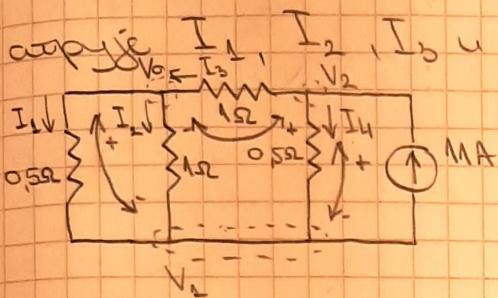 струје I₁, I₂, I₃ и
V₀ I₃ V₂
I₁ I₂ 1Ω I₄
+ - + +
0,5Ω 1Ω 0,5Ω 11A
- -
V₁